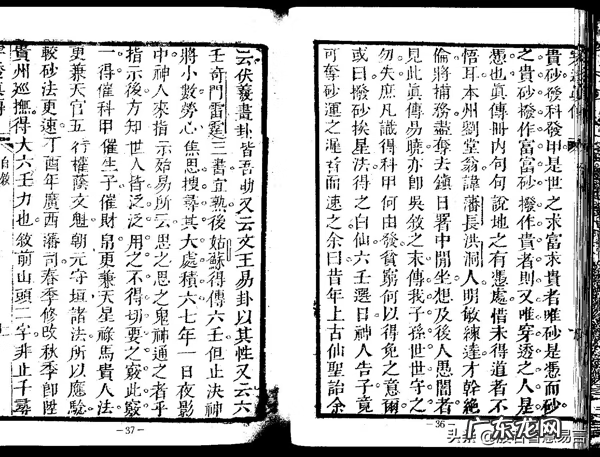 貴砂發科發甲是世之求富求貴者唯砂是憑而砂
之貴砂撥作富富砂撥作貴者則又唯穿透之人是
憑也眞傳冊内句句說地之有憑處惜未得道者不
悟耳本州劉堂翁諱藩長洪洞人明敏練達才幹絶
倫將補務盡奪夫鎮日署中閒坐想及後人愚闇者
見此眞傳易曉亦卽吳敘之末傳我子孫世世守之
勿失庶凡識得科甲何由發貧窮何以得免之意爾
或曰撥砂挨星法得之白仙六壬選日神人告子竟
可奪砂運之遲暫而速之余曰昔年上古仙聖詒余
—36—
云伏羲畫卦皆吾助又云文王易卦以其性又云六
壬奇門雷霆三書宜熟後姑蘇得傳六壬但止決神
將小數勞心焦思搜尋其大處積六七年一日夜影
中神人來指示始易所云思之思之鬼神通之者乎
指示後方知世人皆泛泛用之不得切要之竅此竅
一得催科甲催生子催財帛更兼天星祿馬貴人法
更兼天官五行權蔭文魁朝元守垣諸法所以應驗
較砂法更速丁酉年廣西藩司春季修改秋季卽陞
貴州巡撫得大六壬力也敘前山頭二字非止千尋
—37—
广东龙网
头条